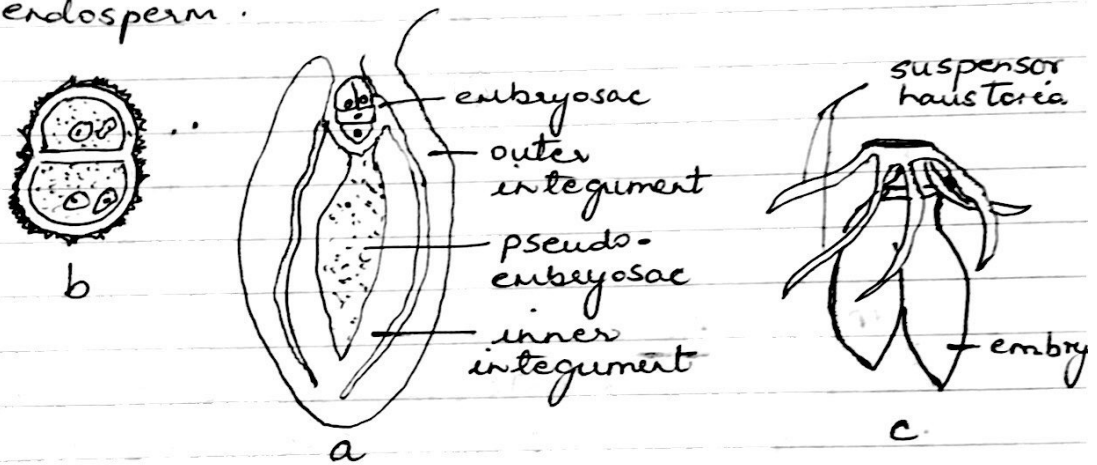 endosperm.
embryosac
outer
integument
pseudo-
embryosac
inner
integument
a
b
suspensor
haustoria
embry
c.